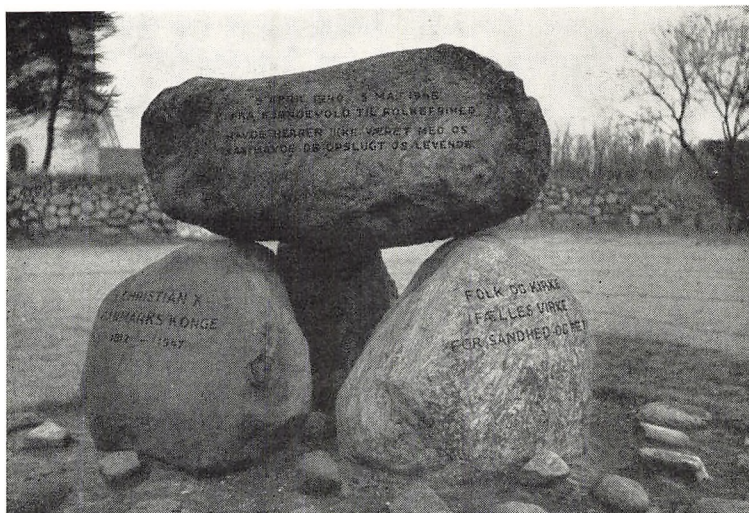 9 APRIL 1940 5 MAJ 1945
FRA FJENDEVOLD TIL FOLKEFRIHED
HAVDE HERREN IKKE VÆRET MED OS
SAA HAVDE DE OPSLUGT OS LEVENDE
CHRISTIAN X
DANMARKS KONGE
1912 - 1947
FOLK OG KIRKE
FÆLLES VIRKE
FOR SANDHED OG RET